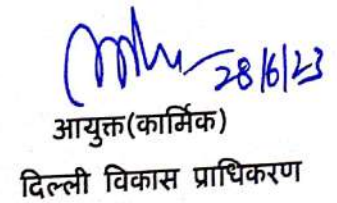 28/6/23
आयुक्त(कार्मिक)
दिल्ली विकास प्राधिकरण